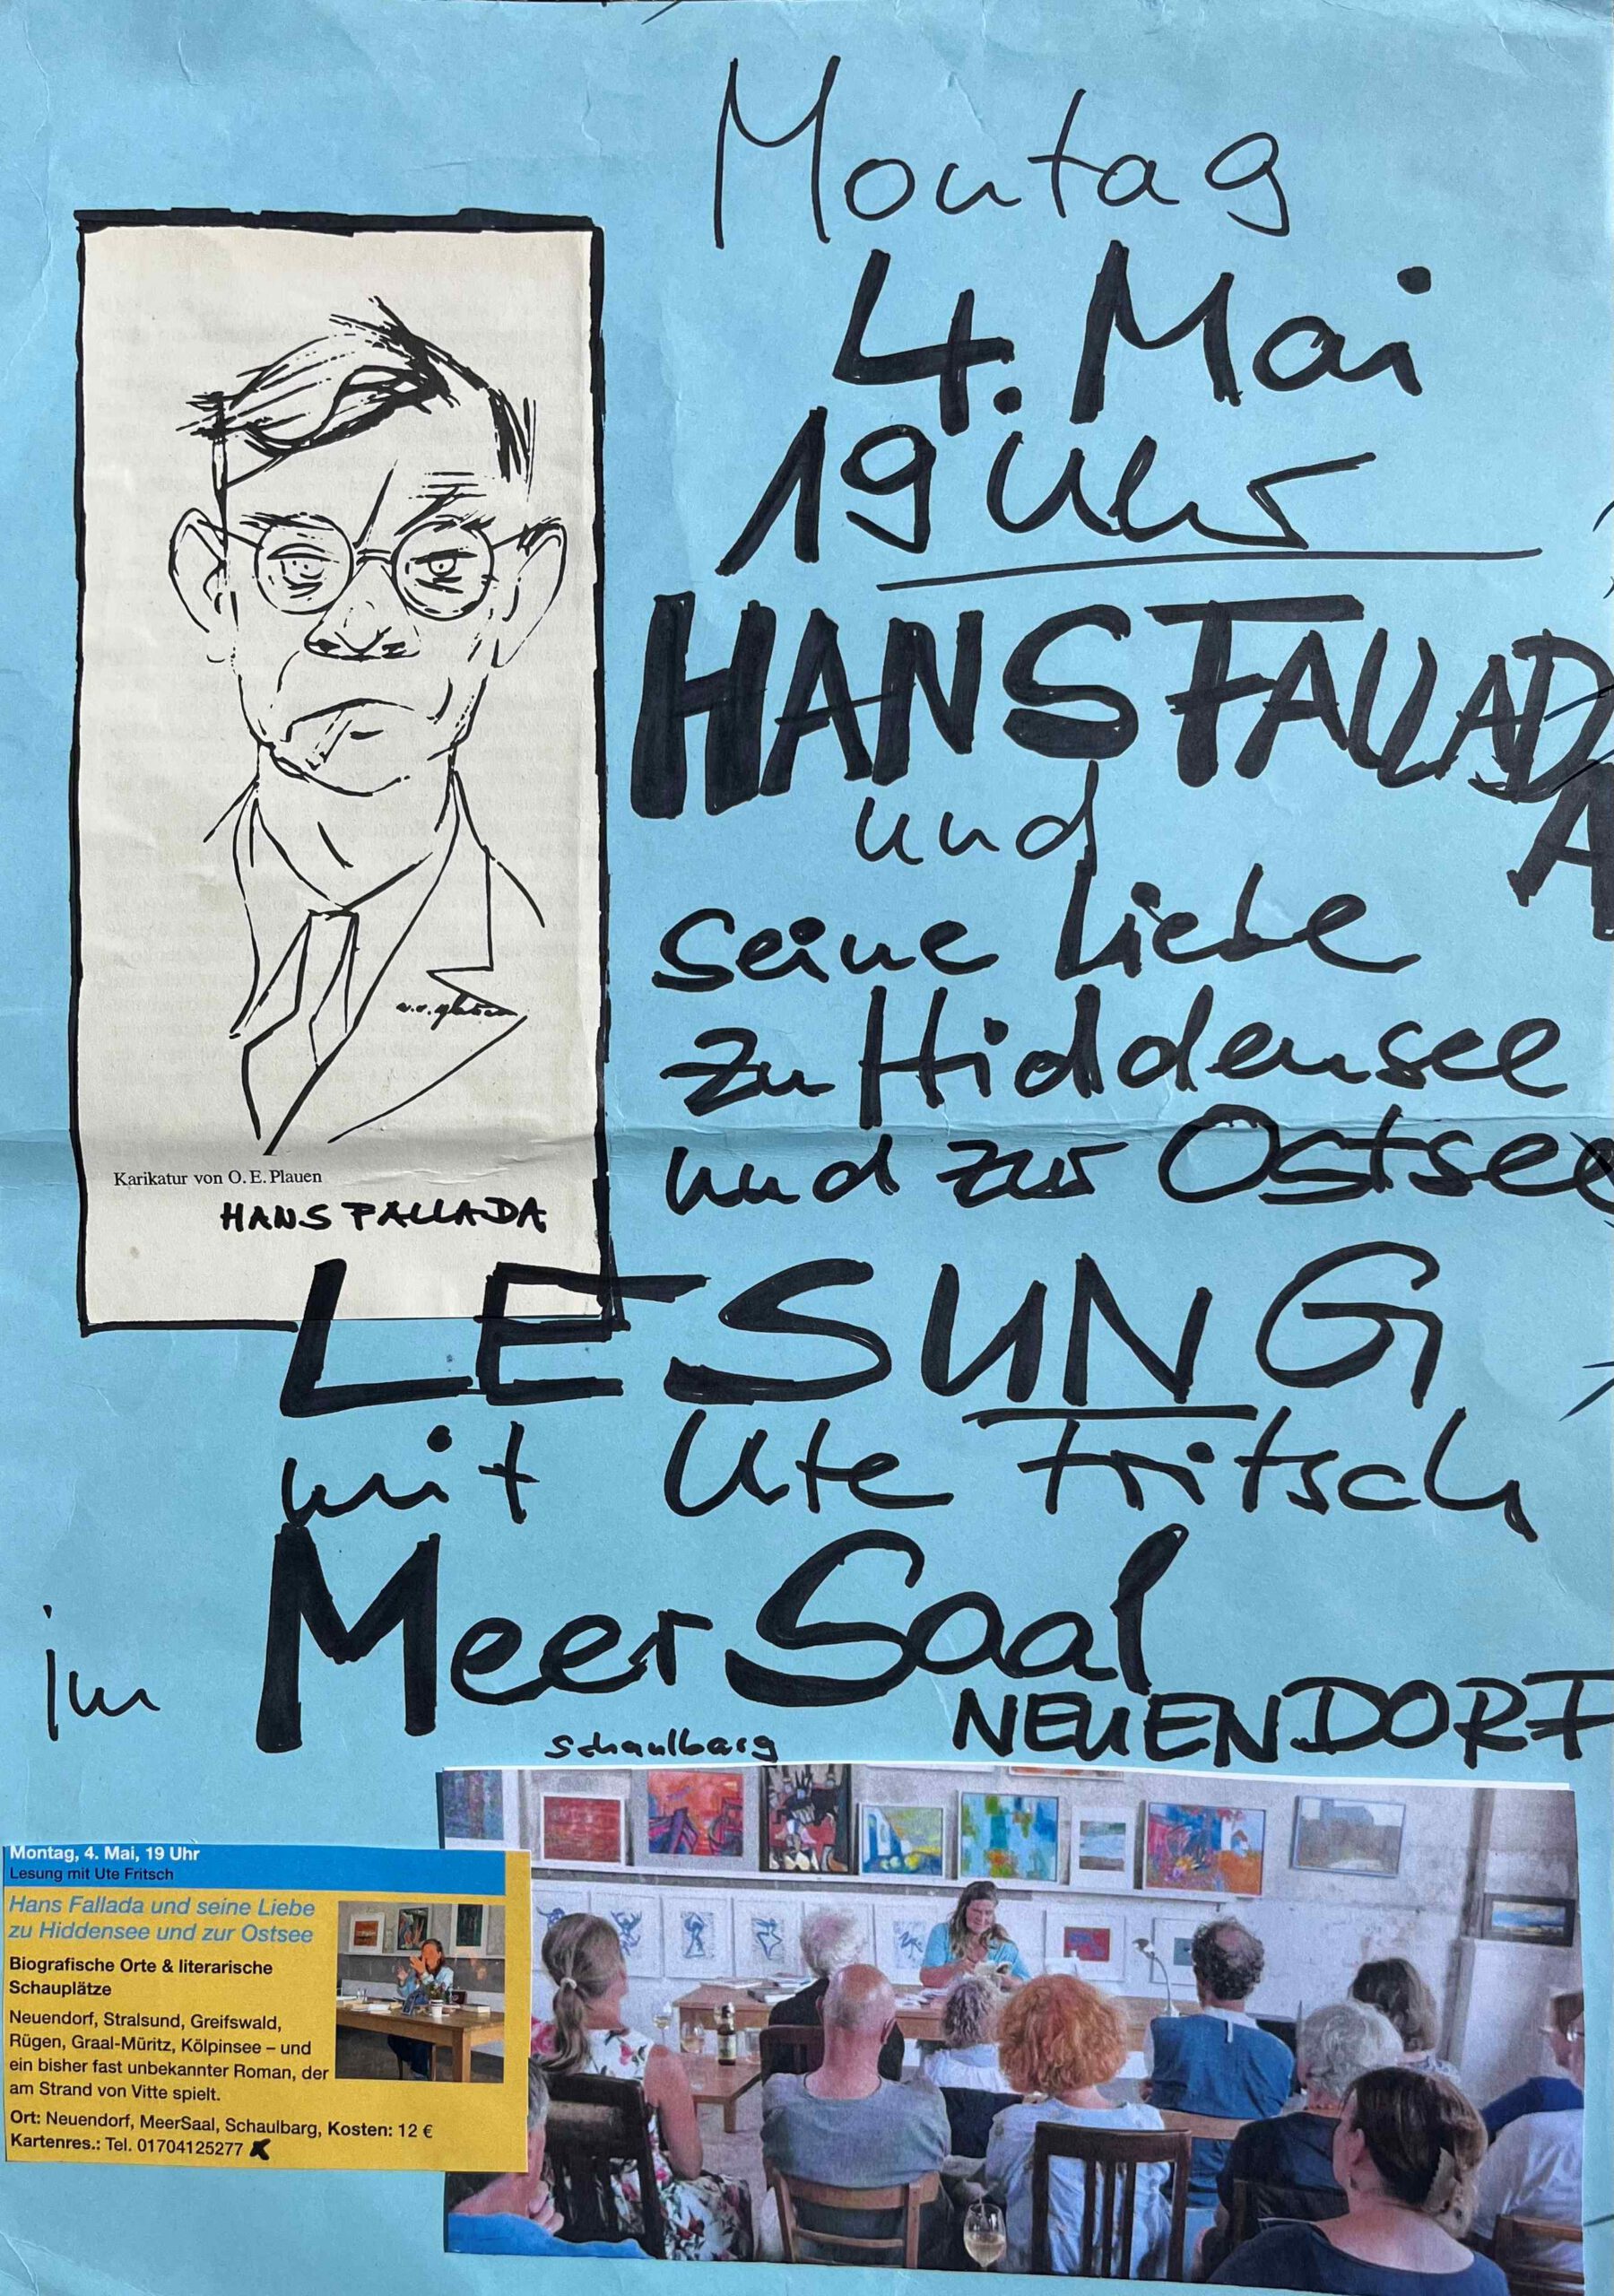 Montag
4. Mai
19 Uhr
HANS FALLADA
und
seine Liebe
zu Hiddensee
und zur Ostsee
Karikatur von O. E. Plauen
HANS FALLADA
LESUNG
mit Ute Fritsch
im MeerSaal
Schaulbarg
NEUENDORF
Montag, 4. Mai, 19 Uhr
Lesung mit Ute Fritsch
Hans Fallada und seine Liebe
zu Hiddensee und zur Ostsee
Biografische Orte & literarische
Schauplätze
Neuendorf, Stralsund, Greifswald,
Rügen, Graal-Müritz, Kölpinsee – und
ein bisher fast unbekannter Roman, der
am Strand von Vitte spielt.
Ort: Neuendorf, MeerSaal, Schaulbarg, Kosten: 12 €
Kartenres.: Tel. 01704125277